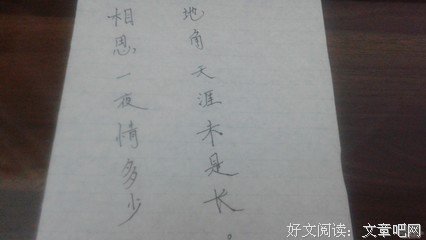 相思一夜情多少
地角天涯未是长。
好文阅读：文章吧网